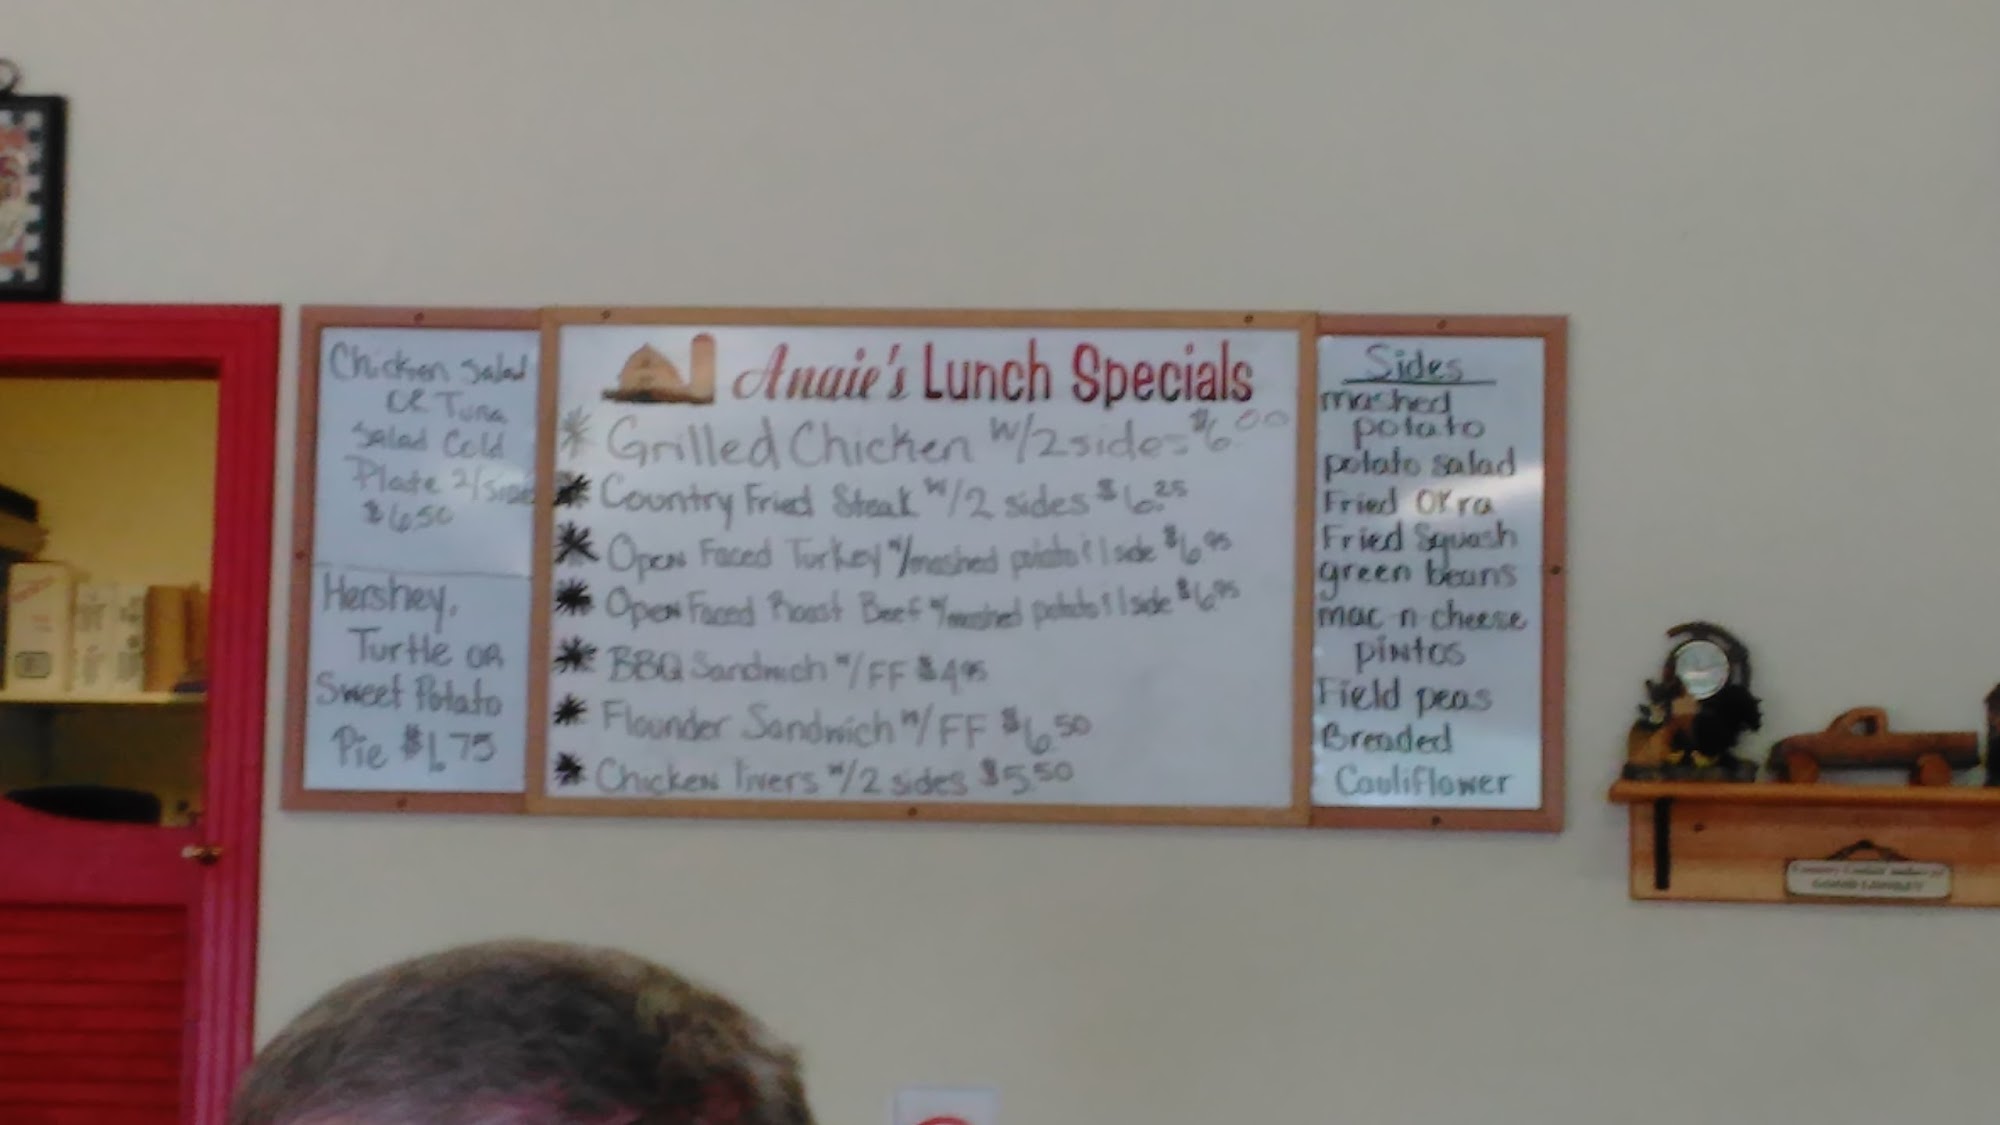 Chicken Salad
OR Tuna
Salad Cold
Plate 2/sides
$6.50
Hershey,
Turtle OR
Sweet Potato
Pie $1.75
Lunch Specials
Grilled Chicken w/2 sides $6.00
Country Fried Steak w/2 sides $6.25
Open Faced Turkey w/mashed potato & 1 side $6.95
Open Faced Roast Beef w/mashed potato & 1 side $6.95
BBQ Sandwich w/FF $4.95
Flounder Sandwich w/FF $6.50
Chicken livers w/2 sides $5.50
Sides
mashed
potato
potato salad
Fried Okra
Fried Squash
green beans
mac n cheese
pintos
Field peas
Breaded
Cauliflower